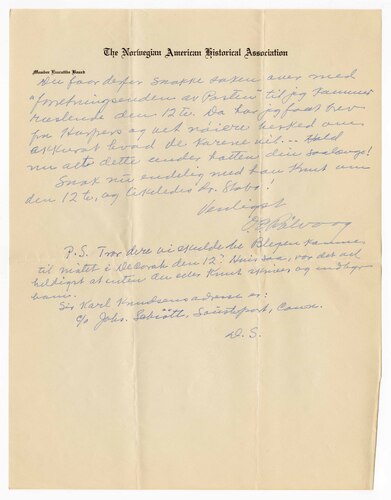 The Norwegian American Historical Association
Member Executive Board
Du faar derfor snakke saken over med
"forretningsenden av Posten" til jeg kommer
den 12te. Da har jeg faat brev
fra Harpers og vet nøiere besked om
akkurat hvad de karene vil... Hold
nu alt dette under hatten din saalænge!
Snak nu endelig med han Knut om
den 12te, og likeledes Dr. Stabo!
Venligst
O E Rølvaag
P.S. Tror dere vi skulde be Blegen komme
til møtet i Decorah den 12? Hvis saa, var det vel
heldigst at enten du eller Knut skriver og indbyr
ham.
Karl Knudsens adresse er:
c/o Johs. Southport, Conn.
D.S.